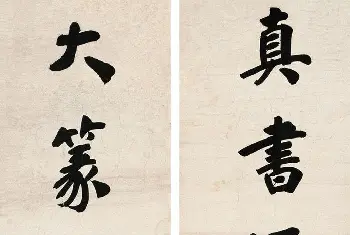 真書
大篆